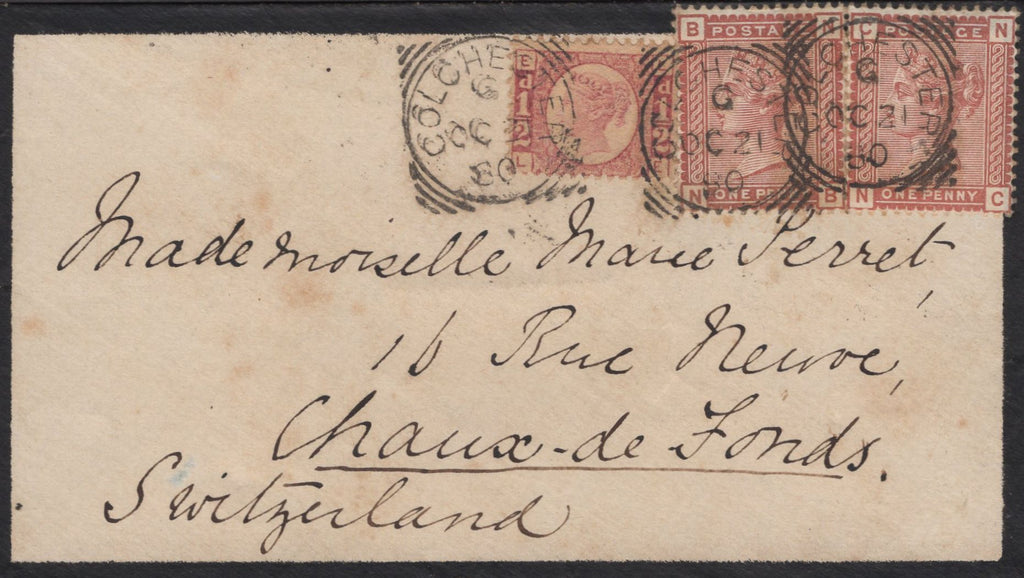 COLCHESTER
G
OC 21
80
E
d
1/2
L
COLCHESTER
G
OC 21
80
B POSTAGE
N ONE PENNY B
COLCHESTER
G
OC 21
80
C POSTAGE N
N ONE PENNY C
Mademoiselle Marie Perret,
16 Rue Neuve,
Chaux-de Fonds.
Switzerland